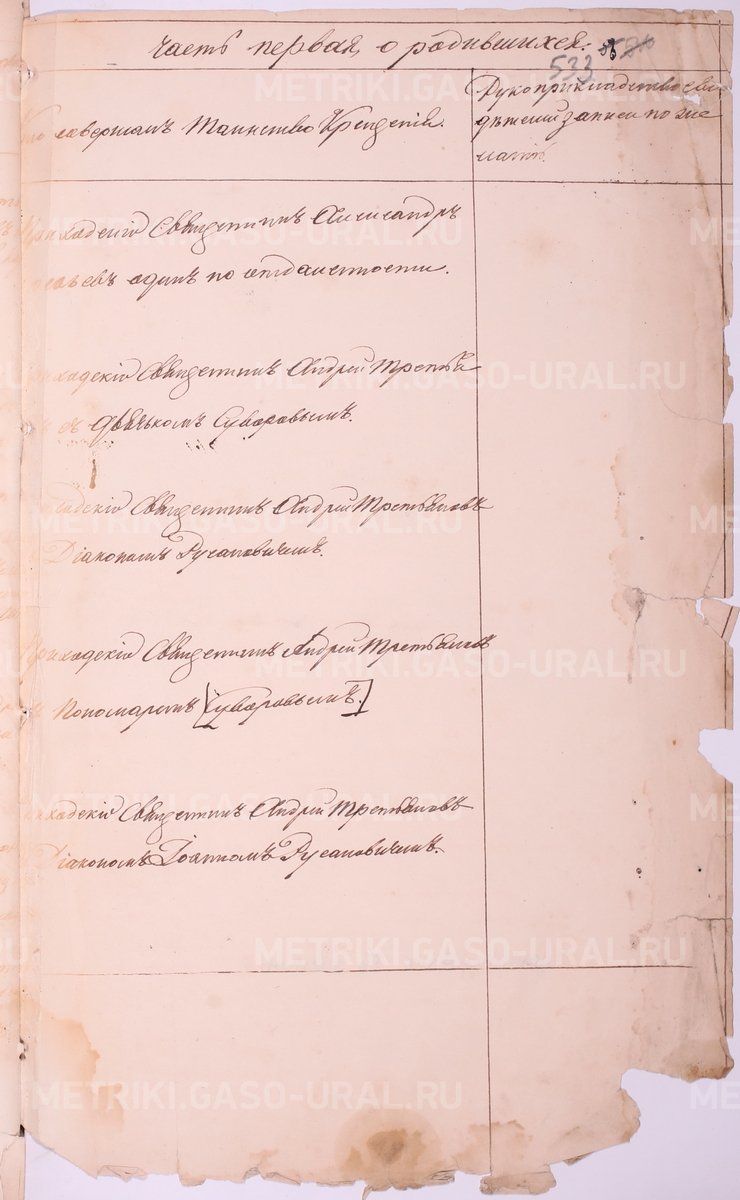 часть первая, о родившихся.
533
Кто совершалъ Таинство Крещенія.
Рукоприкладство сви
дѣтелей записи по же
ланію.
Приходскій Священникъ Александръ
одинъ по отдаленности.
Приходскій Священникъ Андрей Третьяк
съ Дьячькомъ Суворовымъ.
Приходскій Священникъ Андрей Третьяковъ
Діакономъ Русановичемъ.
Приходскій Священникъ Андрей Третьяковъ
Пономаремъ [Суворовымъ.]
Приходскій Священникъ Андрей Третьяковъ
Діакономъ Іоанномъ Русановичемъ.
METRIKI.GASO-URAL.RU